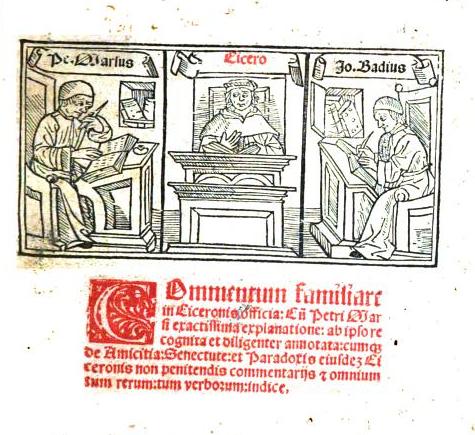 Pe. Marsus
Cicero
Jo. Badius
Commentum familiare
in Ciceronis officia: Cũ Petri Mar
si exactissima explanatione: ab ipso re
cognita et diligenter annotata: cum q̃
de Amicitia: Senectute: et Paradoxis eiusdẽ Ci
ceronis non penitendis commentarijs ⁊ omnium
tum rerum: tum verborum: indice.